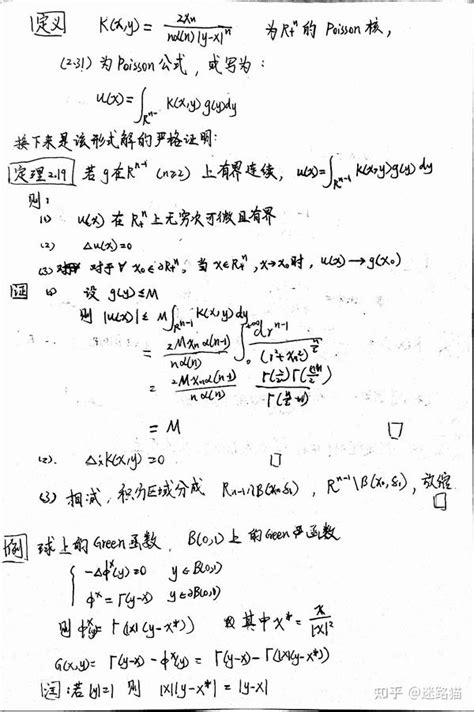 定义 K(x,y) = 2xn / nα(n)|y-x|^n 为 R+^n 的 Poisson 核,
(2.31) 为 Poisson 公式, 或写为:
u(x) = ∫_{R^{n-1}} K(x,y) g(y) dy
接下来是该形式解的严格证明:
定理2.19 若 g 在 R^{n-1} (n≥2) 上有界连续, u(x) = ∫_{R^{n-1}} K(x,y) g(y) dy
则:
(1) u(x) 在 R+^n 上无穷次可微且有界
(2) Δu(x)=0
(3) 对于 ∀ x0∈∂R+^n, 当 x∈R+^n, x→x0 时, u(x)→g(x0)
证 (1) 设 g(y)≤M
则 |u(x)| ≤ M∫_{R^{n-1}} K(x,y) dy
= 2Mxnα(n-1) / nα(n) ∫_0^{+∞} dr^{n-1} / (r²+xn²)^{n/2}
= 2Mxnα(n-1) / nα(n)
= M □
(2). ΔxK(x,y)=0
(3) 相减, 积分区域分成 R^{n-1}∩B(x0,δ), R^{n-1}\B(x0,δ), 放缩 □
例 球上的Green函数, B(0,1) 上的Green函数
{ -Δφ^x(y)=0 y∈B(0,1)
φ^x = Γ(y-x) y∈∂B(0,1)
则 φ^x(y) = Γ(|x|(y-x*)) 其中 x* = x / |x|²
G(x,y) = Γ(y-x) - φ^x(y) = Γ(y-x) - Γ(|x|(y-x*))
注: 若 |y|=1 则 |x||y-x*| = |y-x|
知乎 @迷路猫